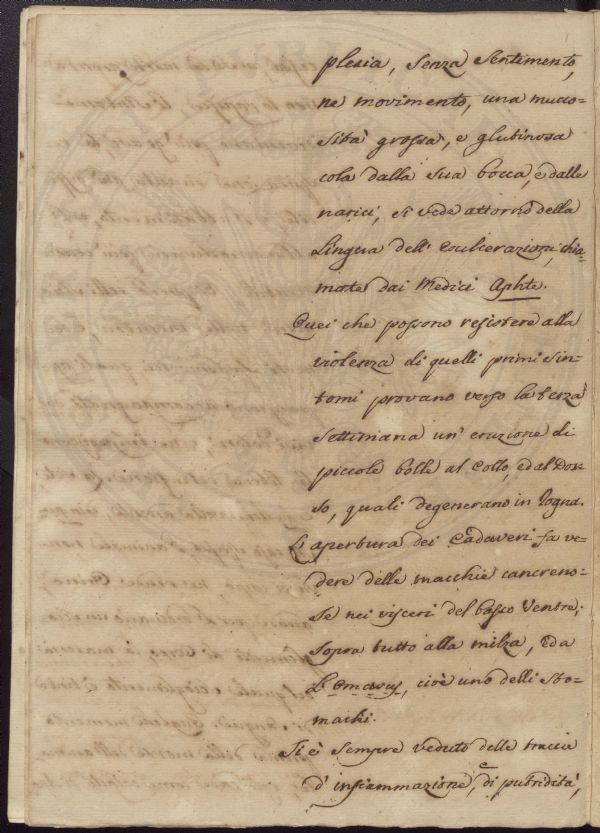 plesia, senza sentimento,
ne movimento, una mucco=
sità grossa, e glutinosa
cola dalla sua bocca, e dalle
narici, si vede attorno della
Lingua dell' Esulcerazioni, chia=
mate dai Medici Aphte.
Quei che possono resistere alla
violenza di quelli primi sin=
tomi provano verso la terza
settimana un' eruzione di
piccole bolle al Collo, ed al Dor=
so, quali degenerano in Rogna.
L'apertura dei Cadaveri fa ve=
dere delle macchie cancreno=
se nei visceri del basso Ventre;
sopra tutto alla milza, ed a
L'Omasus, cioè uno delli Sto=
machi.
Si è sempre veduto delle traccie
d'infiammazione, e di putridità,